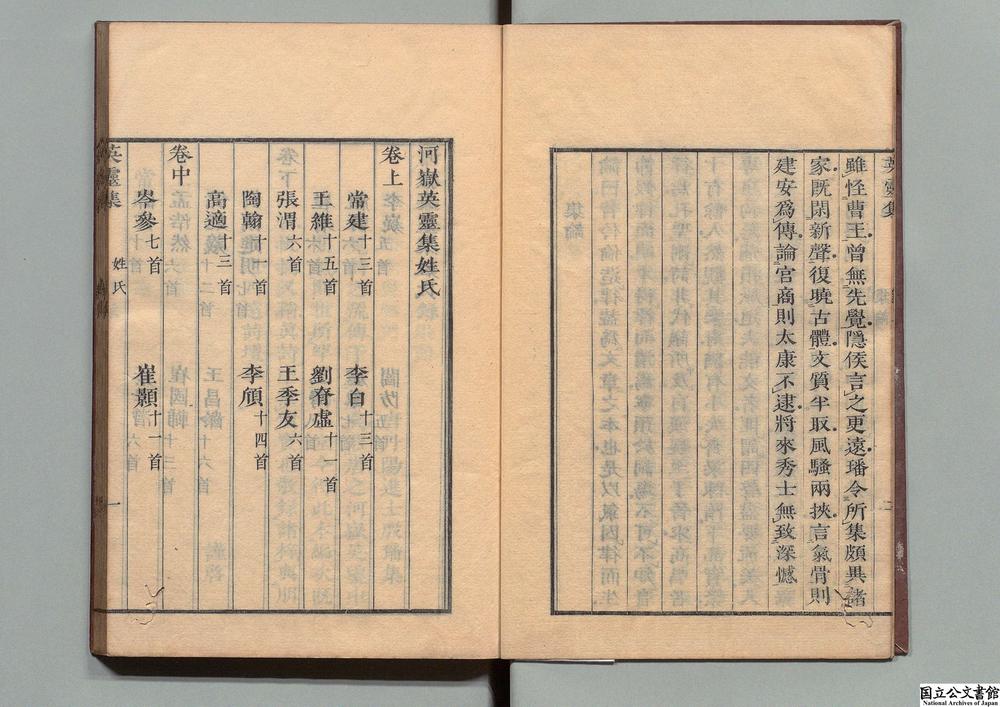 雖怪曹王曾無先覺隱侯言之更遠璠令所集頗異諸
家既閑新聲復曉古體文質半取風騷兩挾言氣骨則
建安爲傳論宮商則太康不逮將來秀士無致深憾
英靈集
河嶽英靈集姓氏
卷上
常建十三首 李白十三首
王維十五首 劉眘虛十一首
張渭六首 王季友六首
陶翰十一首 李頎十四首
高適十三首
卷中
岑參七首 崔顥十一首
英靈集 姓氏 一
国立公文書館
National Archives of Japan